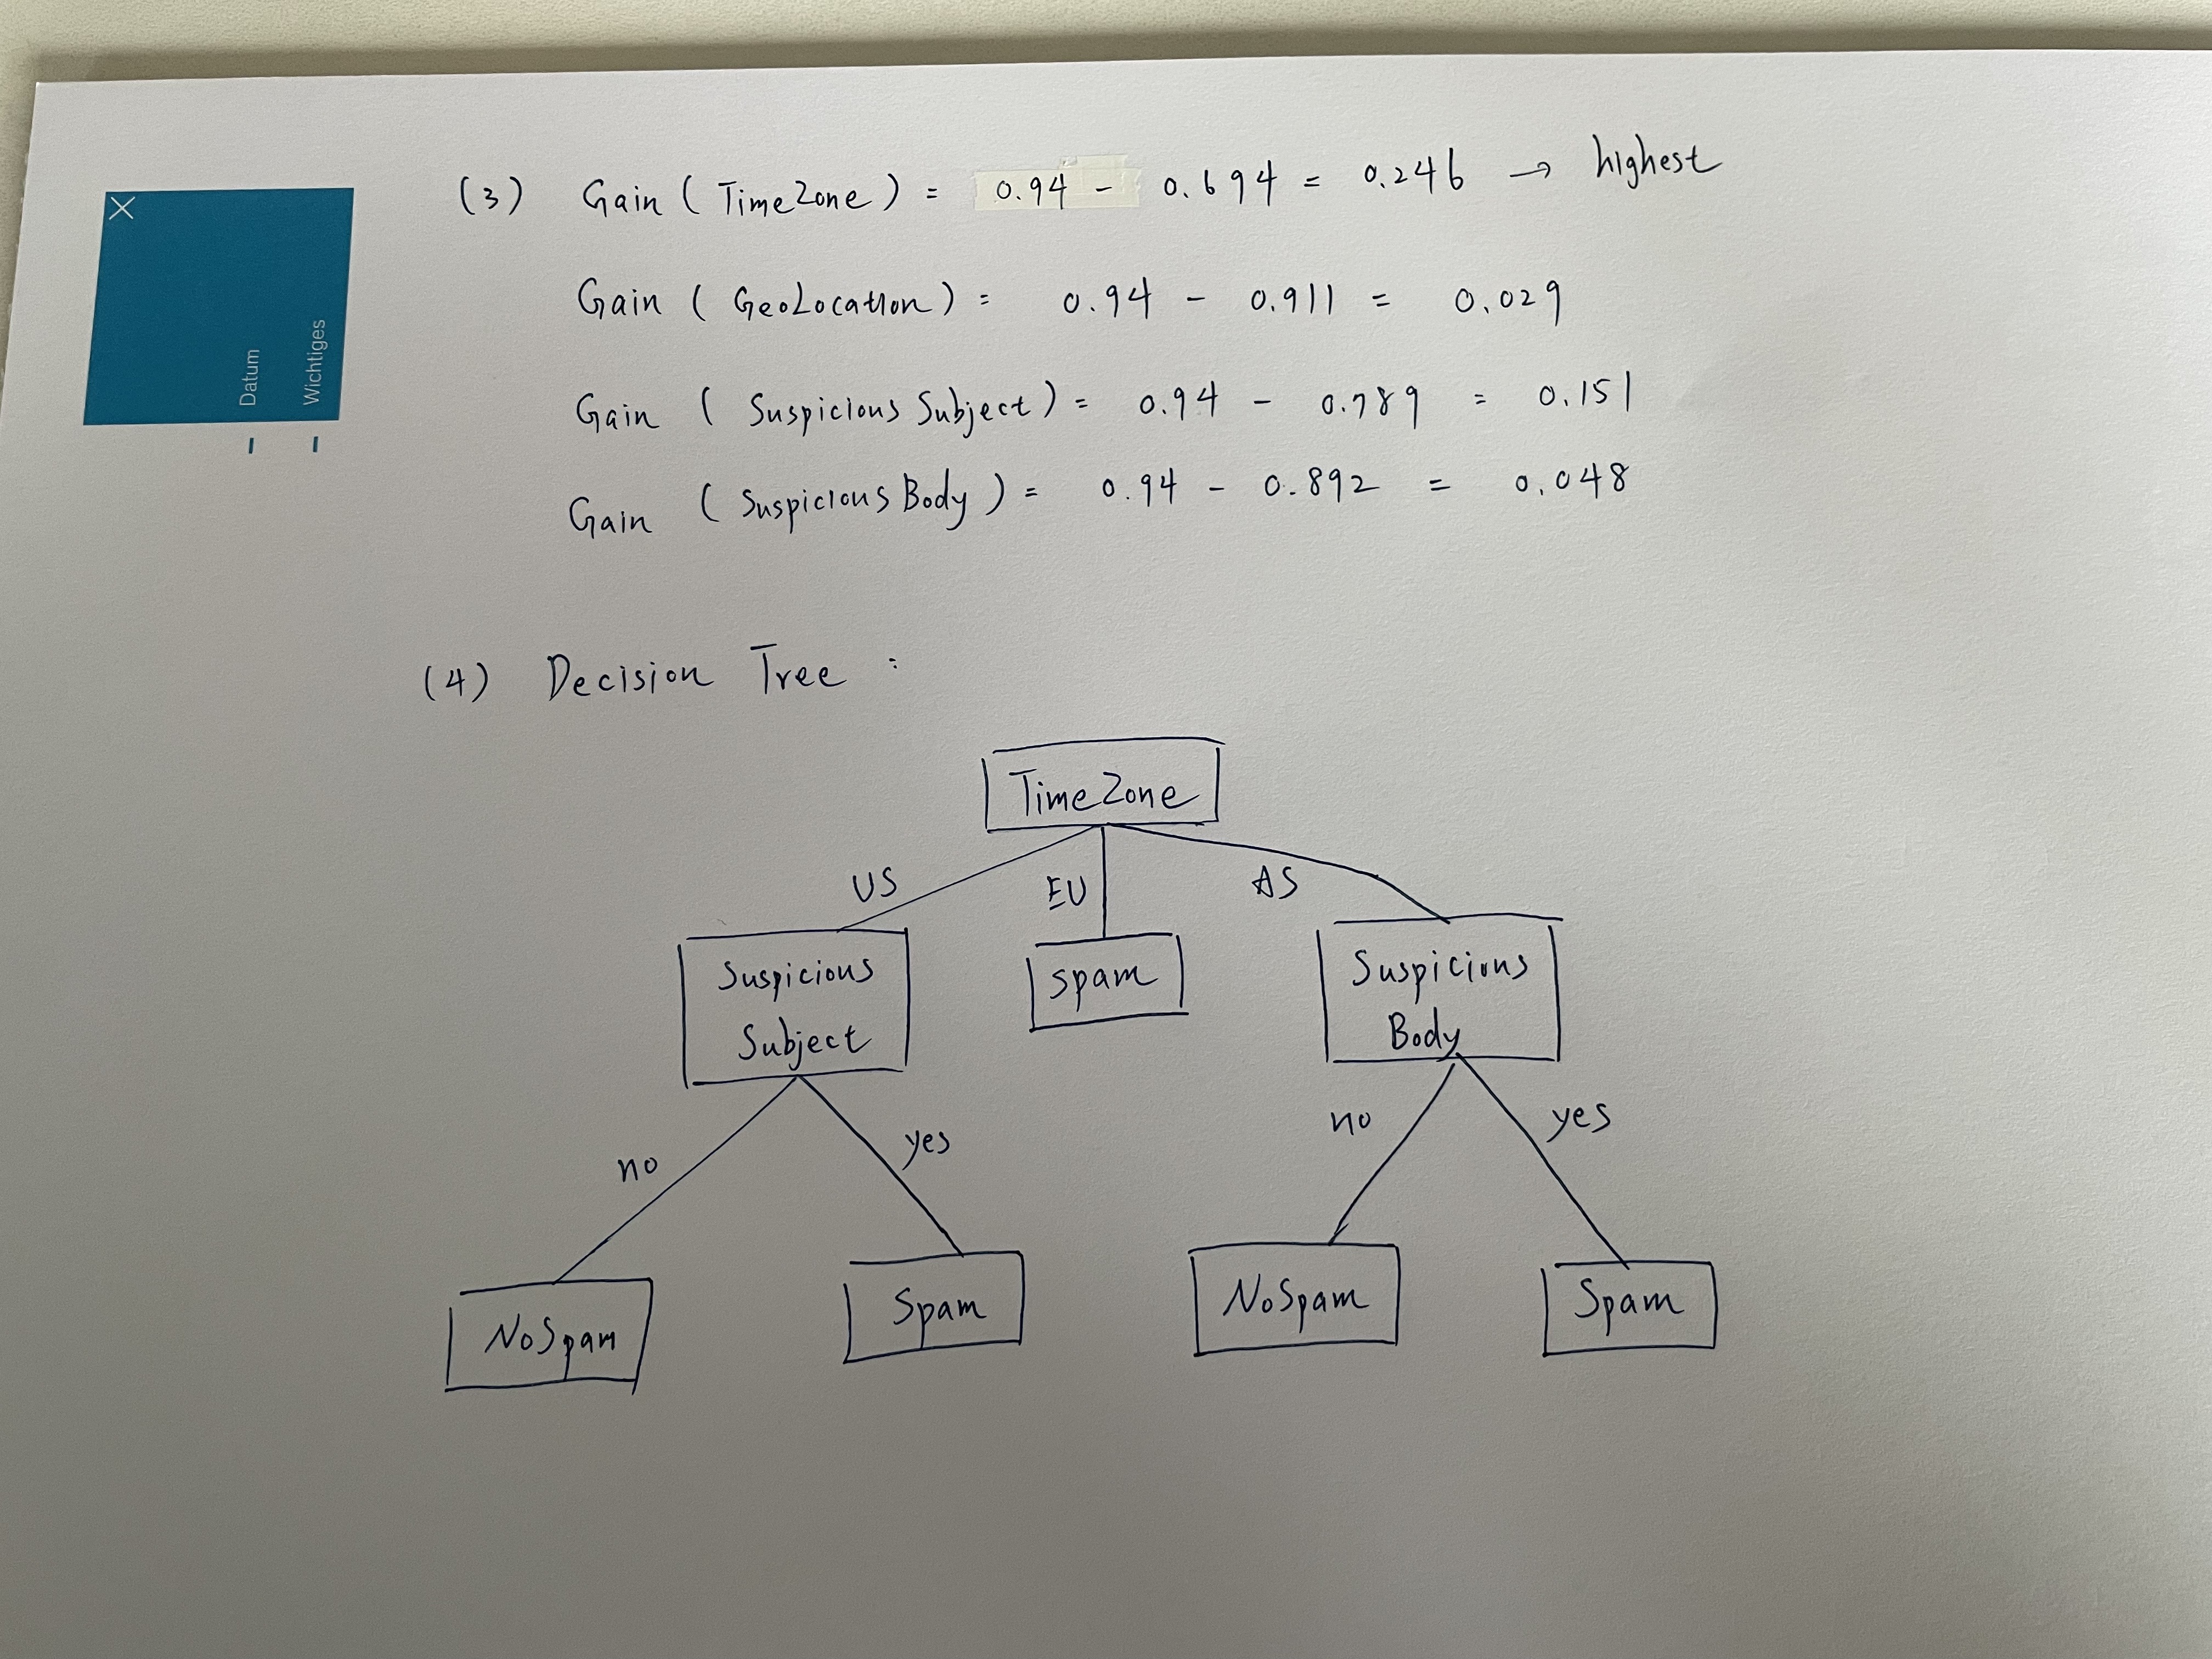 (3) Gain ( TimeZone ) = 0.94 - 0.694 = 0.246 → highest
Gain ( GeoLocation ) = 0.94 - 0.911 = 0.029
Gain ( Suspicious Subject ) = 0.94 - 0.789 = 0.151
Gain ( Suspicious Body ) = 0.94 - 0.892 = 0.048
Datum
Wichtiges
(4) Decision Tree :
TimeZone
US EU AS
Suspicious
Subject
spam
Suspicious
Body
no yes no yes
NoSpam Spam NoSpam Spam